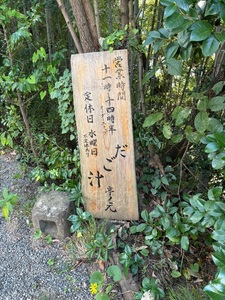 営業時間
十一時〜十四時半
定休日 水曜日
だご汁